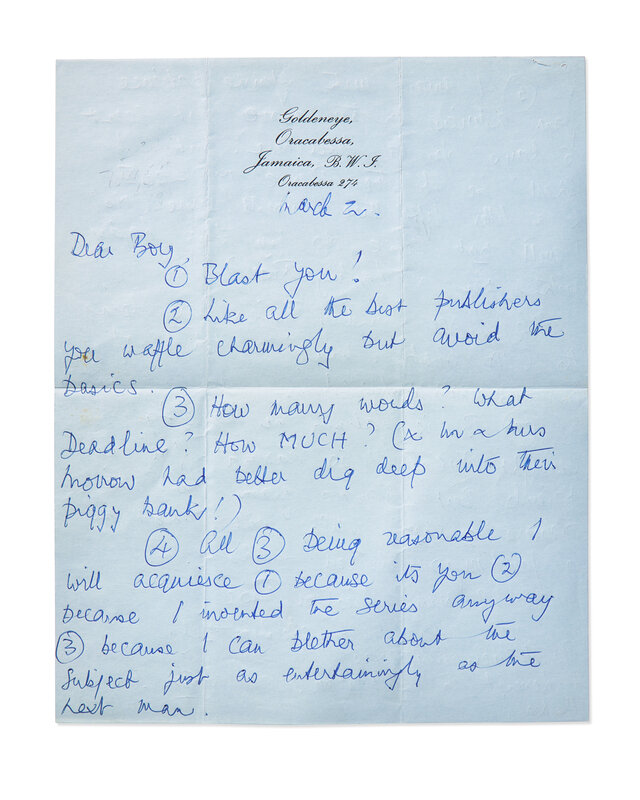 Goldeneye,
Oracabessa,
Jamaica, B.W.I.
Oracabessa 274
March 2.
Dear Boy,
① Blast you!
② Like all the best publishers
you waffle charmingly but avoid the
basics. ③ How many words? What
Deadline? How MUCH? (& Mr & Mrs
Morrow had better dig deep into their
piggy bank!)
④ All ③ being reasonable I
will acquiesce ① because its you ②
because I invented the series anyway
③ because I can blether about the
subject just as entertainingly as the
next man.